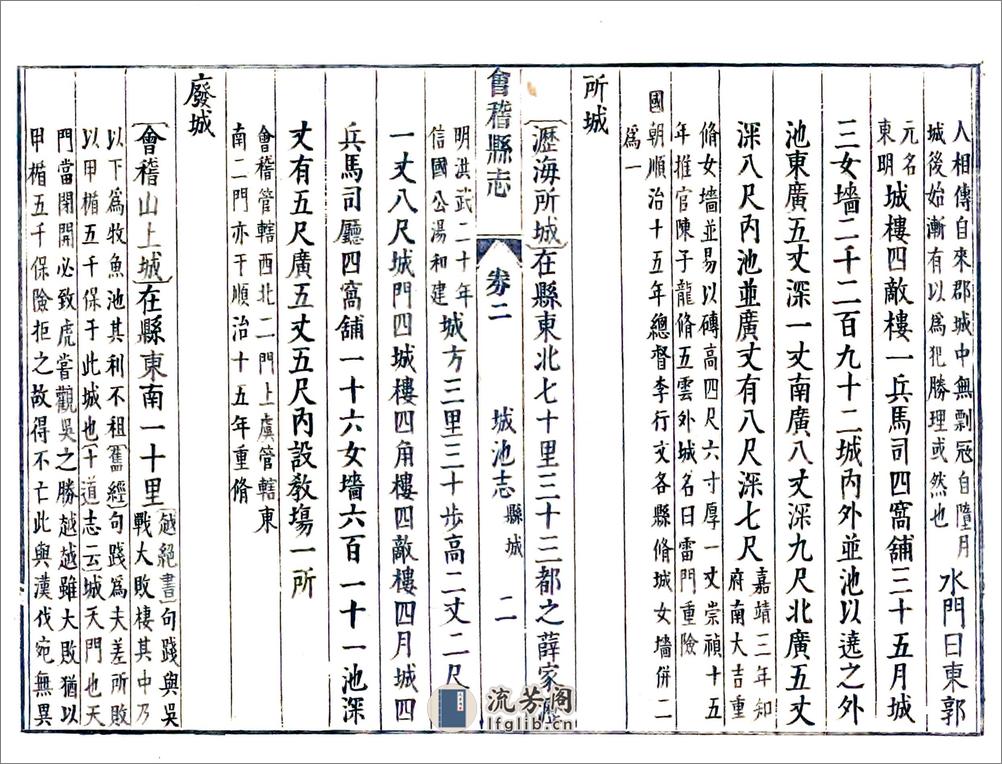 人相傳自來郡城中無剽寇自隳月
城後始漸有以爲犯勝理或然也
水門曰東郭
元名
東明
城樓四敵樓一兵馬司四窩舖三十五月城
三女墻二千二百九十二城內外並池以遶之外
池東廣五丈深一丈南廣八丈深九尺北廣五丈
深八尺內池並廣丈有八尺深七尺
嘉靖三年知
府南大吉重
脩女墻並易以磚高四尺六寸厚一丈崇禎十五
年推官陳子龍脩五雲外城名曰雷門重險
國朝順治十五年總督李行文各縣脩城女墻併二
爲一
所城
瀝海所城在縣東北七十里三十三都之薛家
會稽縣志 卷二 城池志 縣城 二
明洪武二十年
信國公湯和建
城方三里三十步高二丈二尺
一丈八尺城門四城樓四角樓四敵樓四月城四
兵馬司廳四窩舖一十六女墻六百一十一池深
丈有五尺廣五丈五尺內設敎塲一所
會稽管轄西北二門上虞管轄東
南二門亦于順治十五年重脩
廢城
會稽山上城在縣東南一十里
越絕書句踐與吳
戰大敗棲其中乃
以下爲牧魚池其利不租舊經句踐爲夫差所敗
以甲楯五千保于此城也十道志云城天門也天
門當閉開必致虎嘗觀吳之勝越越雖大敗猶以
甲楯五千保險拒之故得不亡此與漢伐宛無異
流芳阁
lfglib.cn